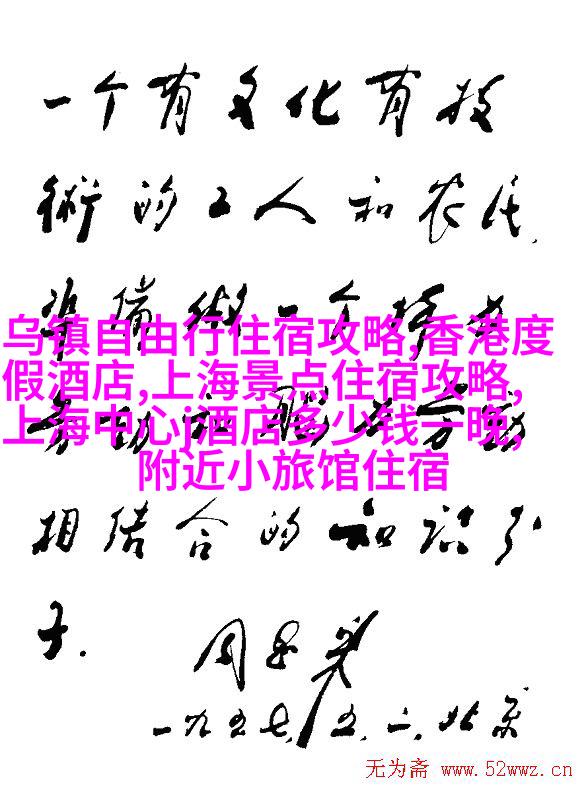 一个有文化有技
術的工人和农民,
备做一个
乌镇自由行住宿攻略,香港度
假酒店,上海景点住宿攻略,
劳动和脑力劳动
上海中心j酒店多少钱一晚,
附近小旅馆住宿
相结合的知識分
子.
周恩来
一九五七,五,二,北京
无为斋 www.52wwz.cn